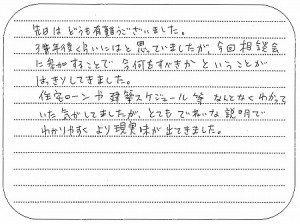 先日は どうも有難うございました。
3年後くらいにはと思っていましたが、今回相談会
に参加することで 今何をすべきか ということが
はっきりしてきました。
住宅ローンや建築スケジュール等 なんとなくわかって
いた気がしてましたが、とても ていねいな説明で
わかりやすく より現実味が出てきました。